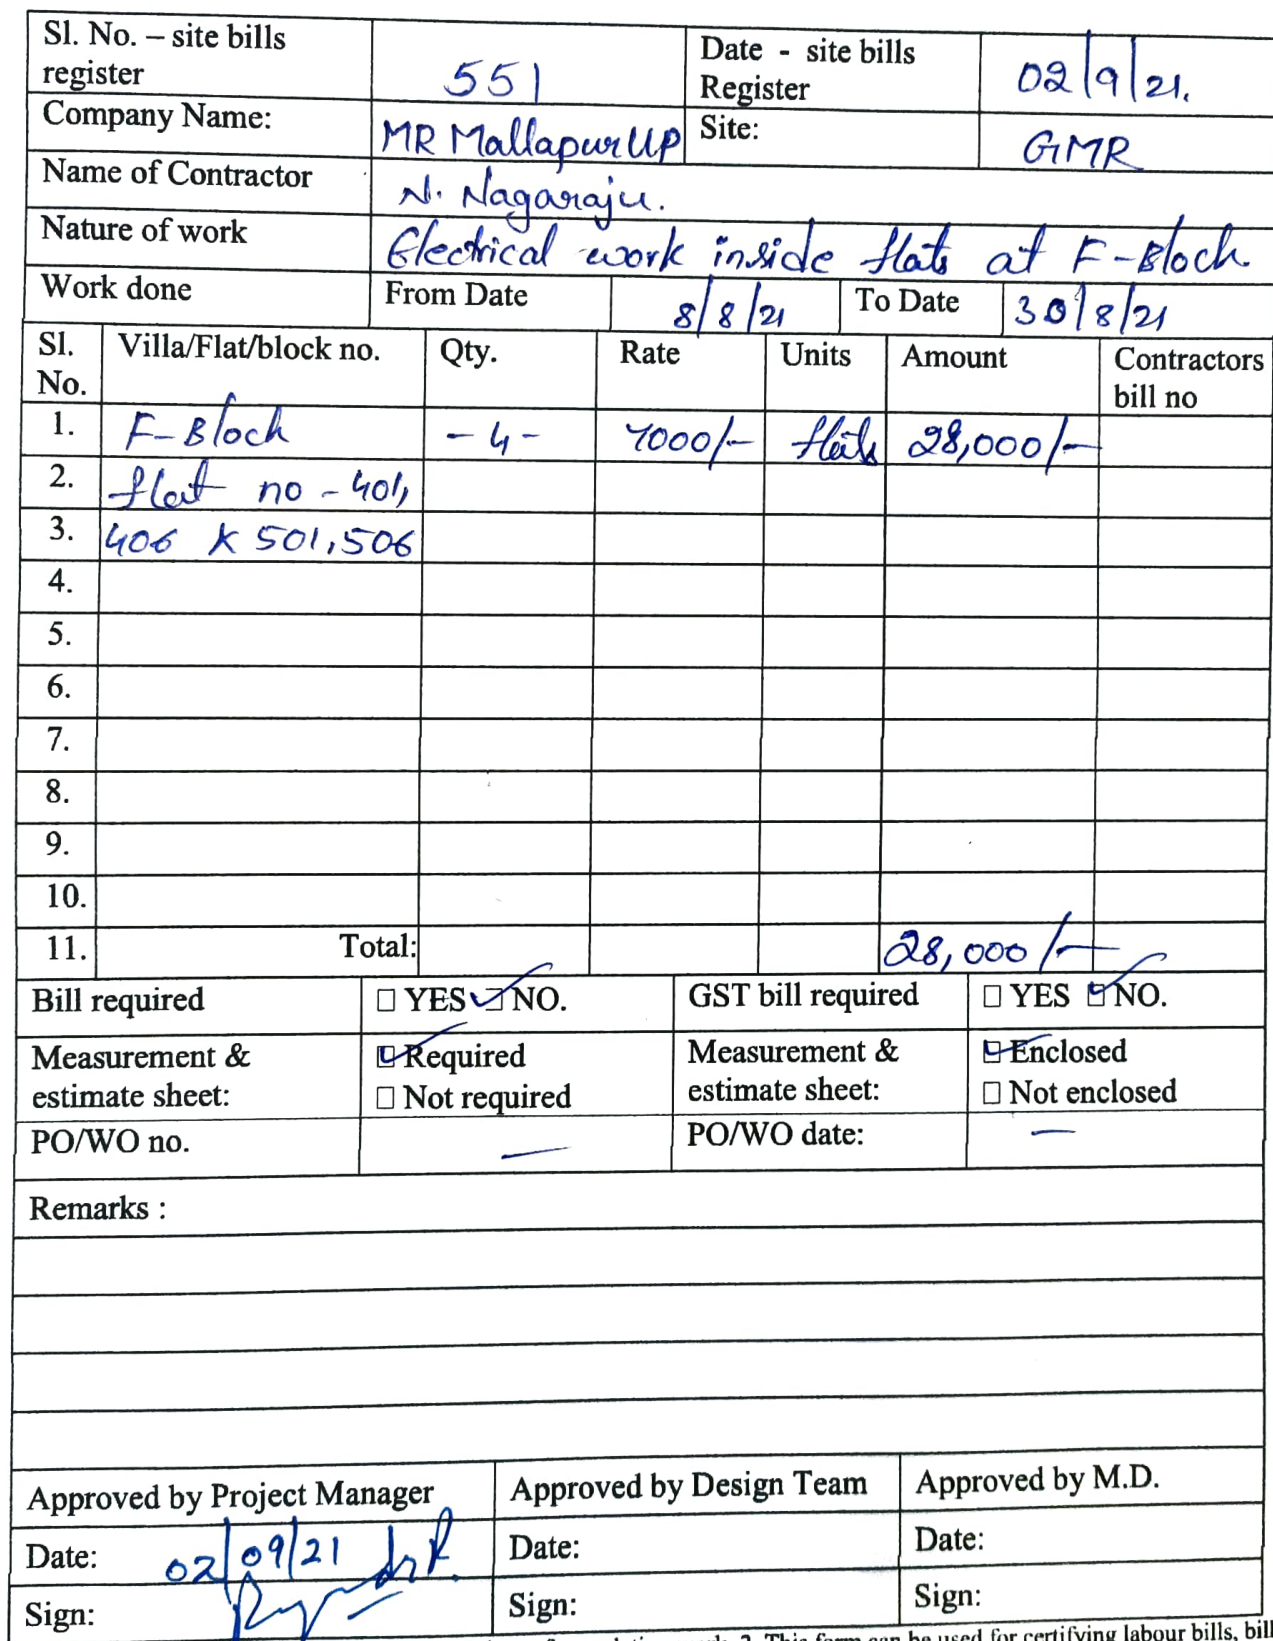 Sl. No. – site bills register 551 Date - site bills Register 02/9/21.
Company Name: MR Mallapur UP Site: GMR
Name of Contractor N. Nagaraju.
Nature of work Electrical work inside flats at F-Block
Work done From Date 8/8/21 To Date 30/8/21
Sl. No. Villa/Flat/block no. Qty. Rate Units Amount Contractors bill no
1. F-Block -4- 7000/- flats 28,000/-
2. flat no - 401,
3. 406 & 501, 506
4.
5.
6.
7.
8.
9.
10.
11. Total: 28,000/-
Bill required ☐ YES ☑ NO. GST bill required ☐ YES ☑ NO.
Measurement & estimate sheet: ☑ Required ☐ Not required Measurement & estimate sheet: ☑ Enclosed ☐ Not enclosed
PO/WO no. — PO/WO date: —
Remarks :
Approved by Project Manager Approved by Design Team Approved by M.D.
Date: 02/09/21 Date: Date:
Sign: Sign: Sign:
This form can be used for certifying labour bills, bill